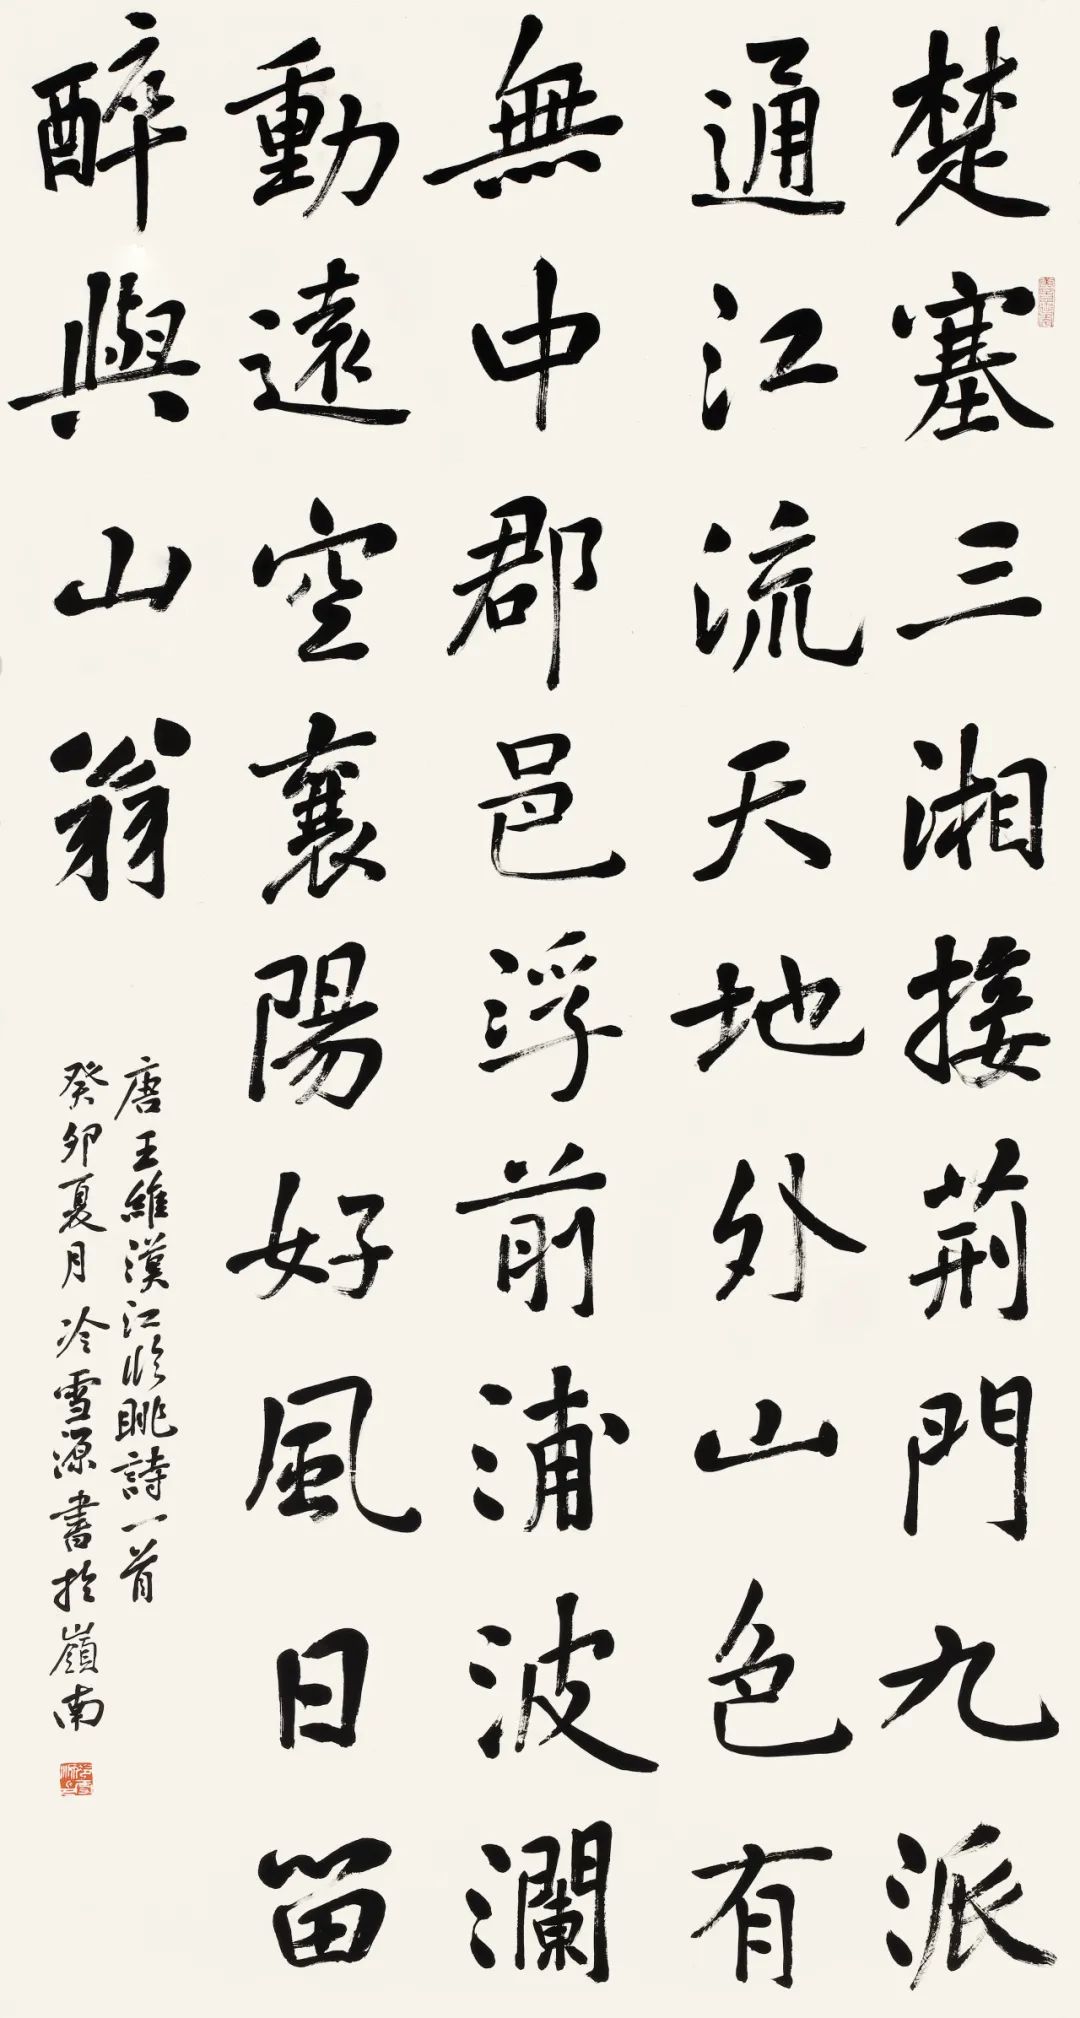 楚塞三湘接荊門九派
通江流天地外山色有
無中郡邑浮前浦波瀾
動遠空襄陽好風日留
醉與山翁
唐王維漢江臨眺詩一首
癸卯夏月冷雪源書於嶺南